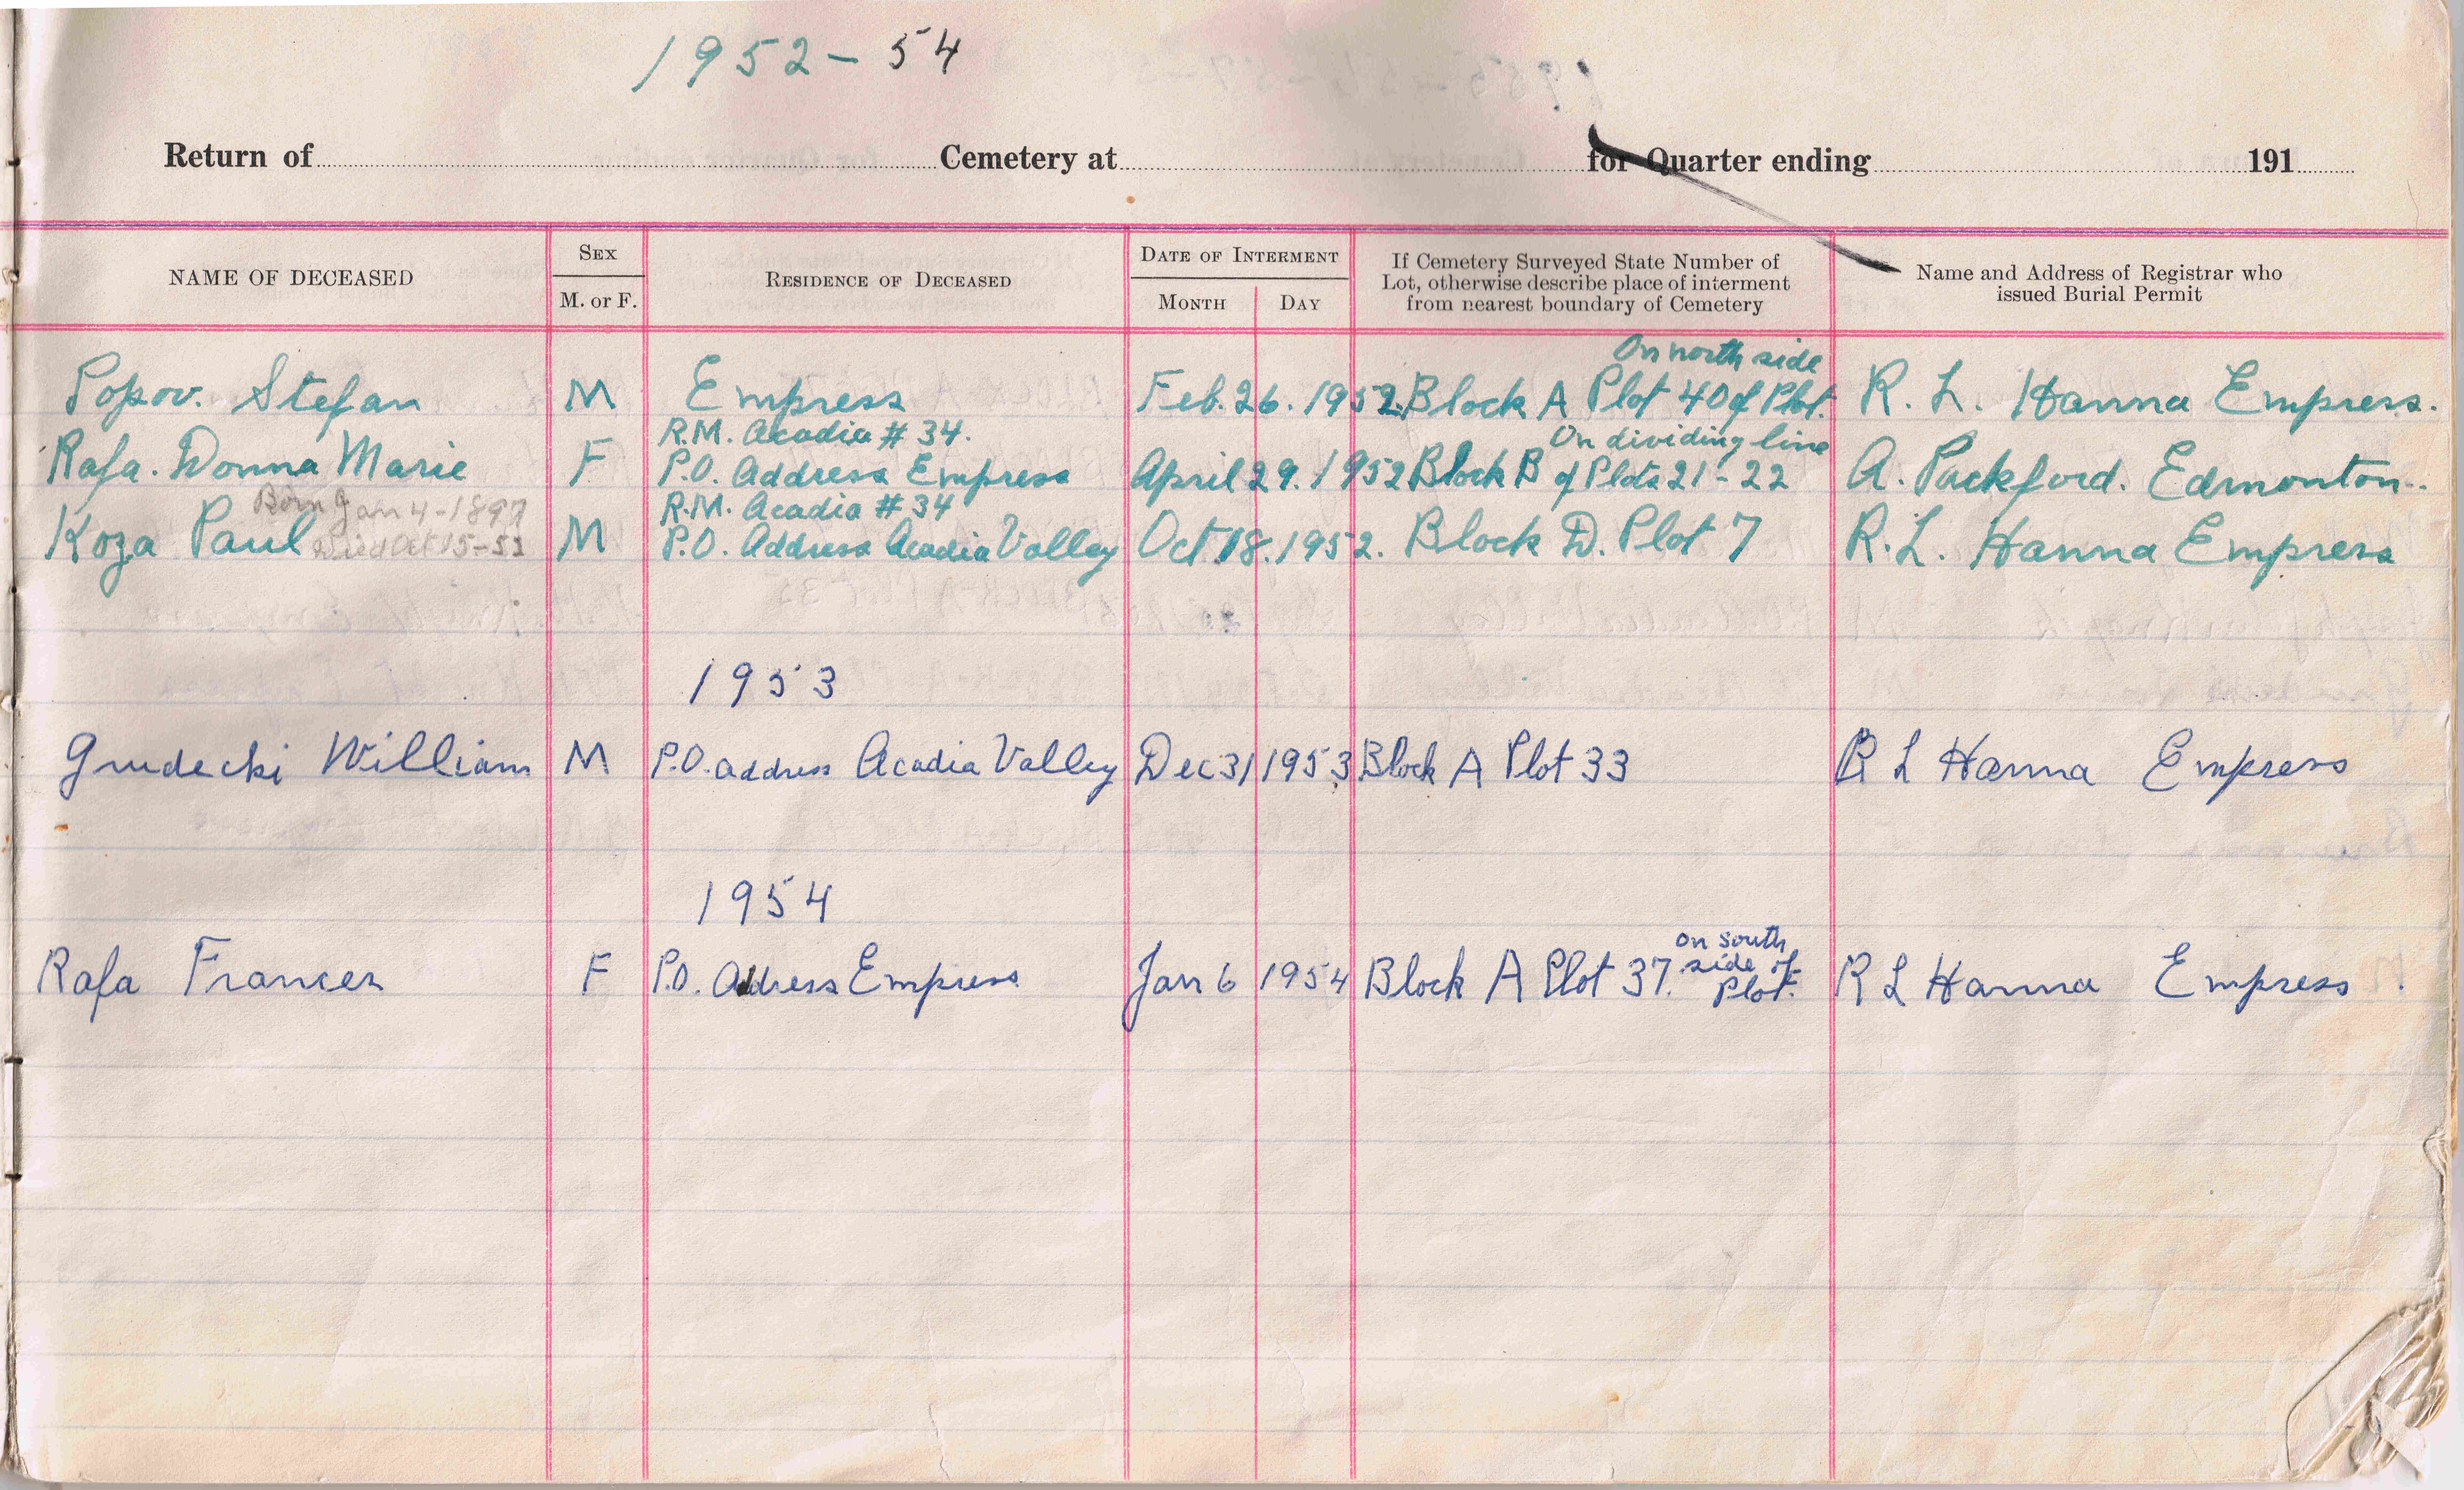 1952 - 54
Return of Cemetery at for Quarter ending 191
NAME OF DECEASED
SEX
M. or F.
RESIDENCE OF DECEASED
DATE OF INTERMENT
MONTH DAY
If Cemetery Surveyed State Number of
Lot, otherwise describe place of interment
from nearest boundary of Cemetery
Name and Address of Registrar who
issued Burial Permit
On north side
Popov. Stefan M Empress Feb. 26. 1952. Block A Plot 40 of Plot. R. L. Hanna Empress.
R.M. Acadia # 34. On dividing line
Rafa. Donna Marie F P.O. Address Empress April 29. 1952 Block B of Plots 21 - 22 A. Packford. Edmonton.
Born Jan 4 - 1897 R.M. Acadia # 34
Koza Paul Died Oct 15 - 52 M P.O. Address Acadia Valley Oct. 18. 1952. Block D. Plot 7 R. L. Hanna Empress
1953
Grudecki William M P.O. address Acadia Valley Dec 31 1953 Block A Plot 33 R L Hanna Empress
1954
Rafa Frances F P.O. Address Empress Jan 6 1954 Block A Plot 37. on south side of Plot. R L Hanna Empress.